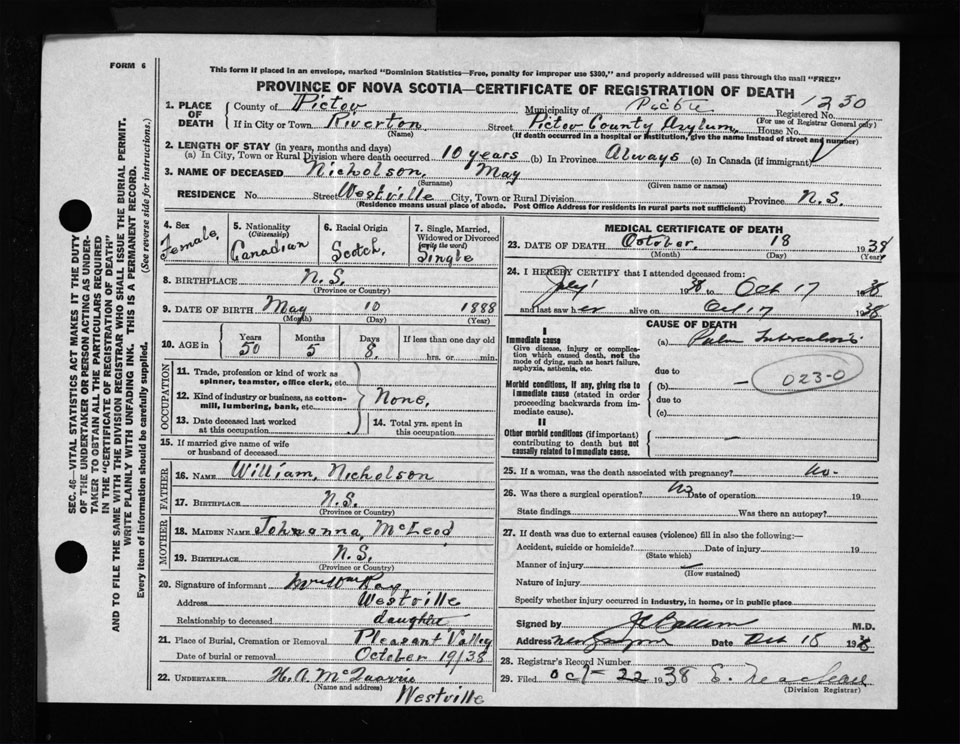 FORM 6
This form if placed in an envelope, marked "Dominion Statistics—Free, penalty for improper use $300," and properly addressed will pass through the mail "FREE"
PROVINCE OF NOVA SCOTIA—CERTIFICATE OF REGISTRATION OF DEATH
1. PLACE OF DEATH
County of Pictou Municipality of Pictou Registered No. 1250
(For use of Registrar General only)
If in City or Town Riverton Street Pictou County Asylum, House No.
(Name) (If death occurred in a hospital or institution, give the name instead of street and number)
2. LENGTH OF STAY (in years, months and days)
(a) In City, Town or Rural Division where death occurred 10 years (b) In Province Always (c) In Canada (if immigrant)
3. NAME OF DECEASED Nicholson, May
(Surname) (Given name or names)
RESIDENCE No. Street Westville City, Town or Rural Division Province N.S.
(Residence means usual place of abode. Post Office Address for residents in rural parts not sufficient)
4. Sex Female,
5. Nationality (Citizenship) Canadian
6. Racial Origin Scotch,
7. Single, Married, Widowed or Divorced (write the word) Single
8. BIRTHPLACE N.S.
(Province or Country)
9. DATE OF BIRTH May 10 1888
(Month) (Day) (Year)
10. AGE in Years 50 Months 5 Days 8. If less than one day old hrs. or min.
OCCUPATION
11. Trade, profession or kind of work as spinner, teamster, office clerk, etc.
12. Kind of industry or business, as cotton-mill, lumbering, bank, etc.
None,
13. Date deceased last worked at this occupation
14. Total yrs. spent in this occupation
15. If married give name of wife or husband of deceased
FATHER
16. NAME William, Nicholson
17. BIRTHPLACE N.S.
(Province or Country)
MOTHER
18. MAIDEN NAME Johnanna, McLeod
19. BIRTHPLACE N.S.
(Province or Country)
20. Signature of informant Mrs Wm Ray
Address Westville
Relationship to deceased daughter
21. Place of Burial, Cremation or Removal Pleasant Valley
Date of burial or removal October 19/38
22. UNDERTAKER H. A. McQuarrie
(Name and address)
Westville
MEDICAL CERTIFICATE OF DEATH
23. DATE OF DEATH October, 18 1938
(Month) (Day) (Year)
24. I HEREBY CERTIFY that I attended deceased from:
July 1 1938 to Oct 17 1938
and last saw her alive on Oct 17 1938
CAUSE OF DEATH
I
Immediate cause
Give disease, injury or complication which caused death, not the mode of dying, such as heart failure, asphyxia, asthenia, etc.
(a) Pulm Tuberculosis
due to
Morbid conditions, if any, giving rise to immediate cause (stated in order proceeding backwards from immediate cause).
(b) — 023-0
due to
(c)
II
Other morbid conditions (if important) contributing to death but not causally related to immediate cause.
25. If a woman, was the death associated with pregnancy? No -
26. Was there a surgical operation? No Date of operation 19
State findings Was there an autopsy?
27. If death was due to external causes (violence) fill in also the following:—
Accident, suicide or homicide? Date of injury 19
(State which)
Manner of injury
(How sustained)
Nature of injury
Specify whether injury occurred in industry, in home, or in public place
Signed by M.D.
Address Date Oct 18 1938
28. Registrar's Record Number
29. Filed Oct 22 1938
(Division Registrar)
SEC. 46—VITAL STATISTICS ACT MAKES IT THE DUTY OF THE UNDERTAKER OR PERSON ACTING AS UNDERTAKER TO OBTAIN ALL THE PARTICULARS REQUIRED IN THE "CERTIFICATE OF REGISTRATION OF DEATH" AND TO FILE THE SAME WITH THE DIVISION REGISTRAR WHO SHALL ISSUE THE BURIAL PERMIT.
WRITE PLAINLY WITH UNFADING INK. THIS IS A PERMANENT RECORD.
Every item of information should be carefully supplied. (See reverse side for instructions.)